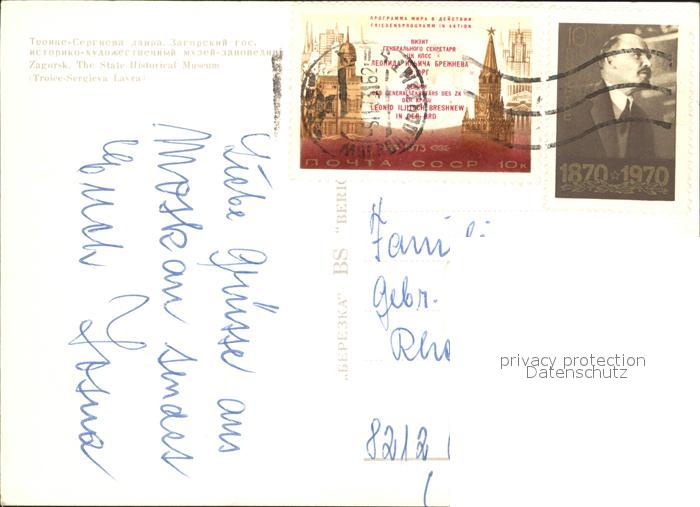 Троице-Сергиева лавра. Загорский гос.
историко-художественный музей-заповедник
Zagorsk. The State Historical Museum
(Troice-Sergieva Lavra)
ПРОГРАММА МИРА В ДЕЙСТВИИ
FRIEDENSPROGRAMM IN AKTION
ВИЗИТ
ГЕНЕРАЛЬНОГО СЕКРЕТАРЯ
ЦК КПСС
ЛЕОНИДА ИЛЬИЧА БРЕЖНЕВА
ФРГ
DES GENERALSEKRETÄRS DES ZK
DER KPdSU
LEONID ILJITSCH BRESHNEW
IN DER BRD
1973
ПОЧТА СССР 10к
10
1870 1970
Liebe Grüsse aus
Moskau sendet
Euch
"БЕРЕЗКА" BS "BERIO
Gebr.
8212
privacy protection
Datenschutz